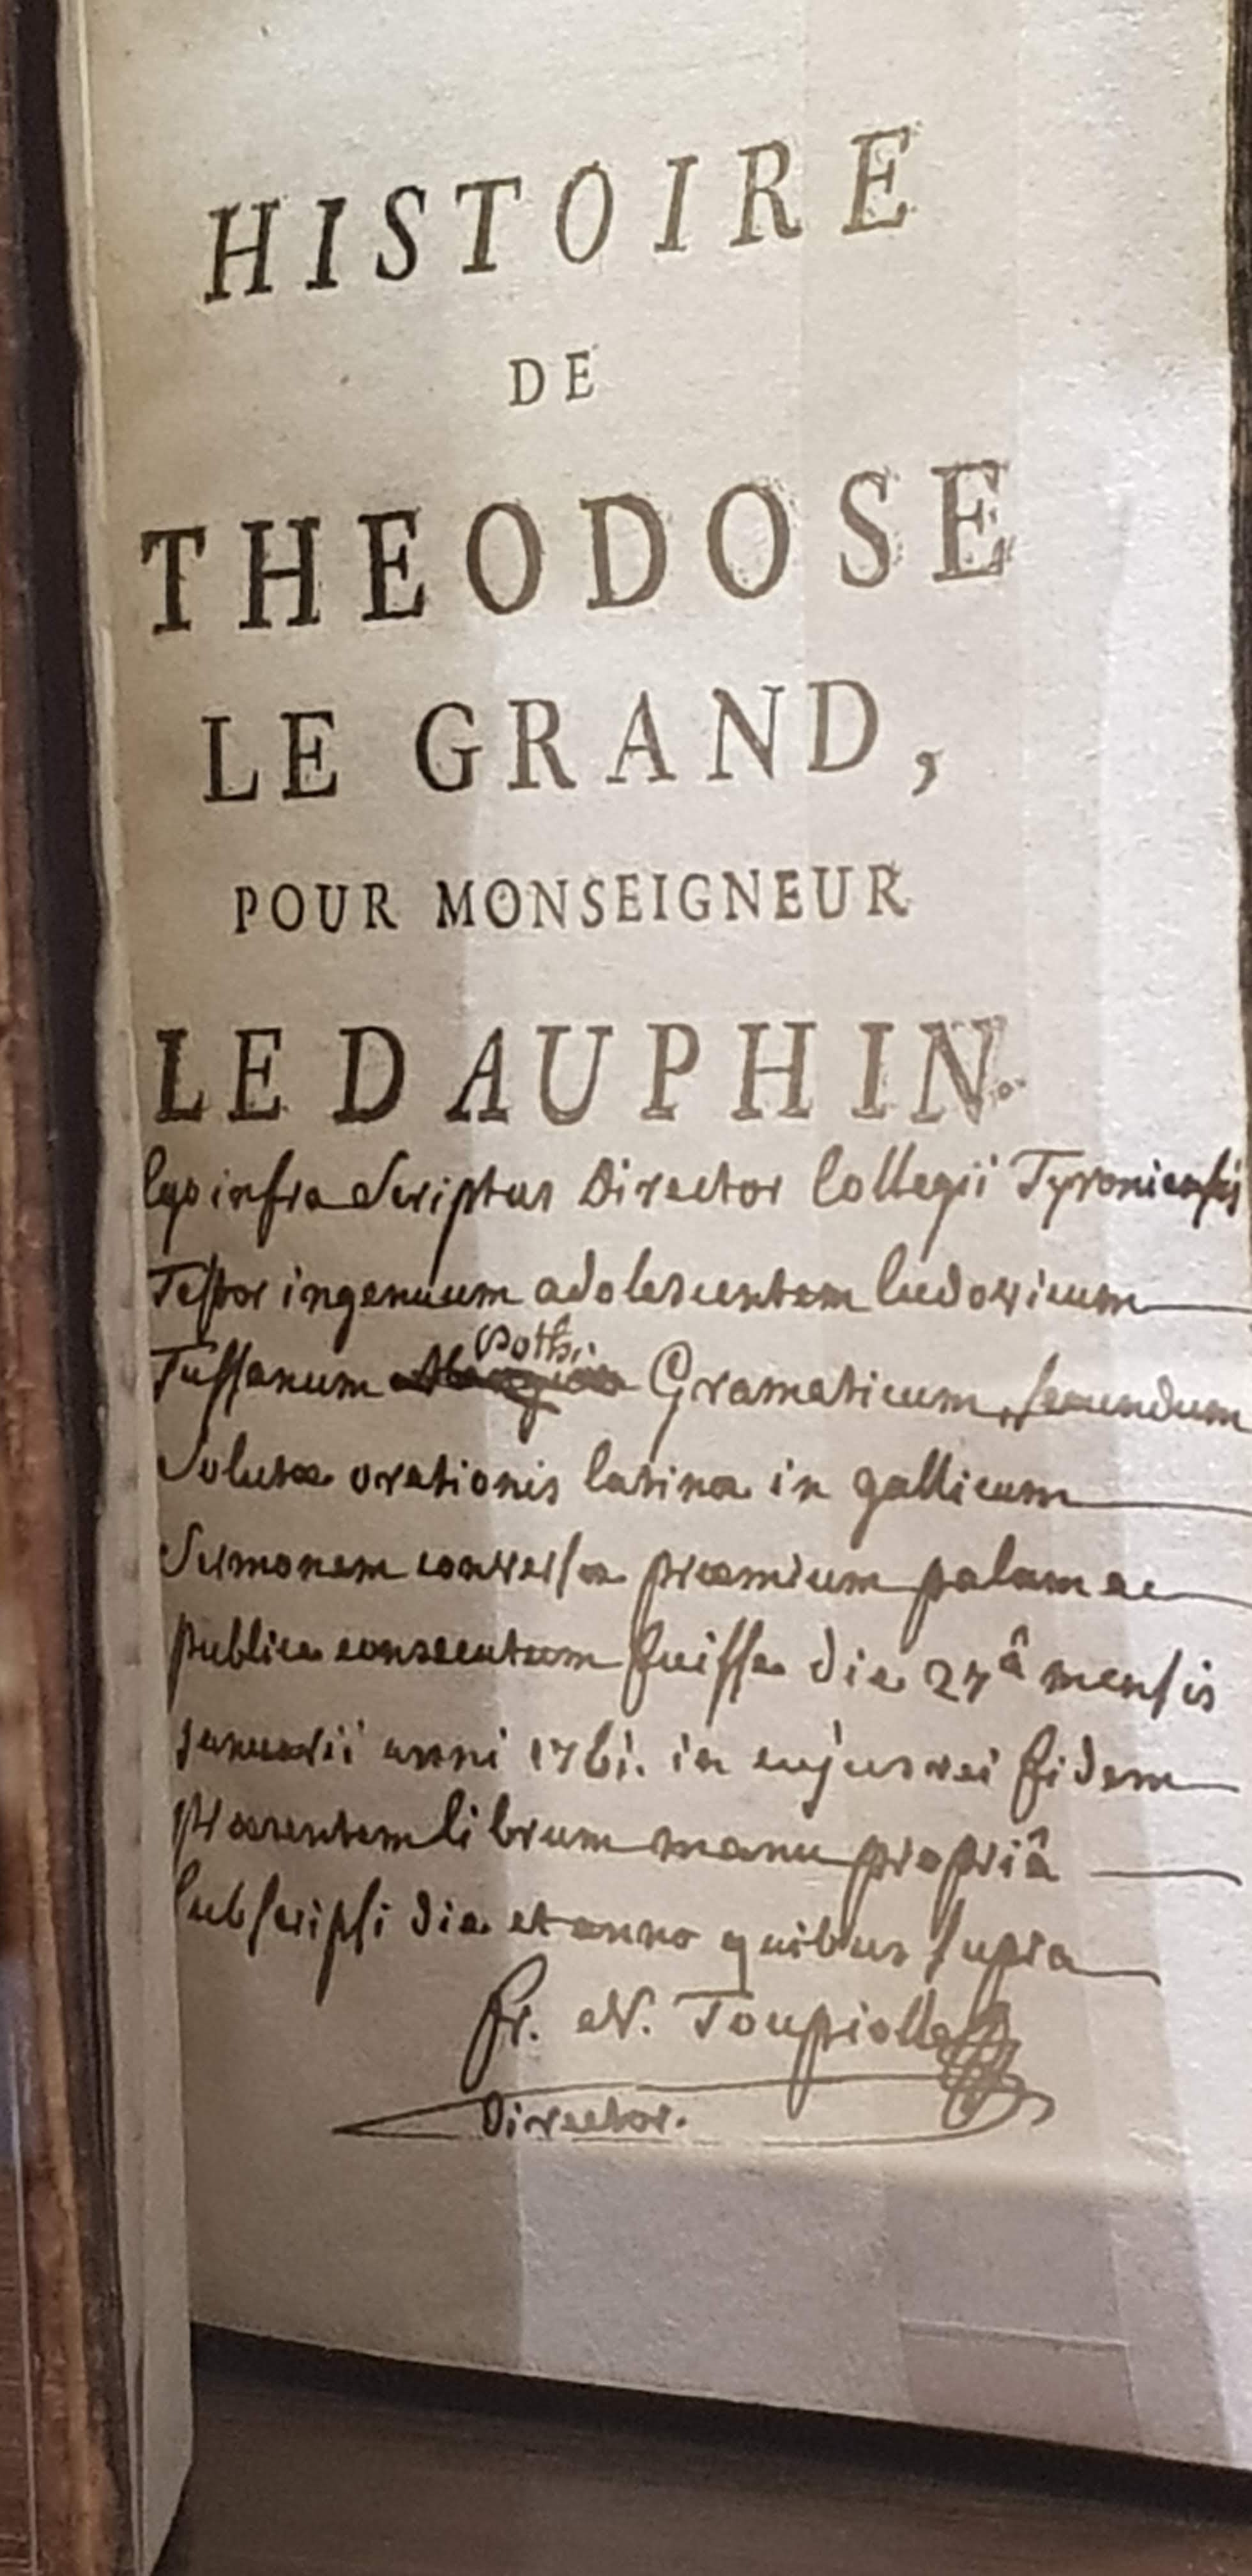 HISTOIRE
DE
THEODOSE
LE GRAND,
POUR MONSEIGNEUR
LE DAUPHIN.
Ego infra Scriptus Director Collegii Tyroniensis
Testor ingenuum adolescentem ludovicum
Tussanum Gramaticum, secundum
Solutæ orationis latinæ in gallicum
Sermonem conversæ præmium palam ac
publice consecutum fuisse die 27â mensis
januarii anni 1761. in cujus rei fidem
præsentem librum manu propriâ
subscripsi die et anno quibus supra
fr. N. Toupiolle
Director.